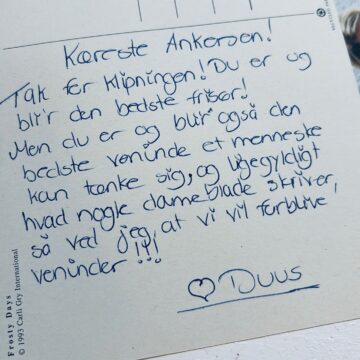 Kæreste Ankersen!
Tak for klipningen! Du er og
blir den bedste frisør!
Men du er og blir også den
bedste veninde et menneske
kan tænke sig, og ligegyldigt
hvad nogle dameblade skriver,
så ved jeg, at vi vil forblive
veninder !!!
♡ Duus
Frosty Days
© 1993 Carli Gry International